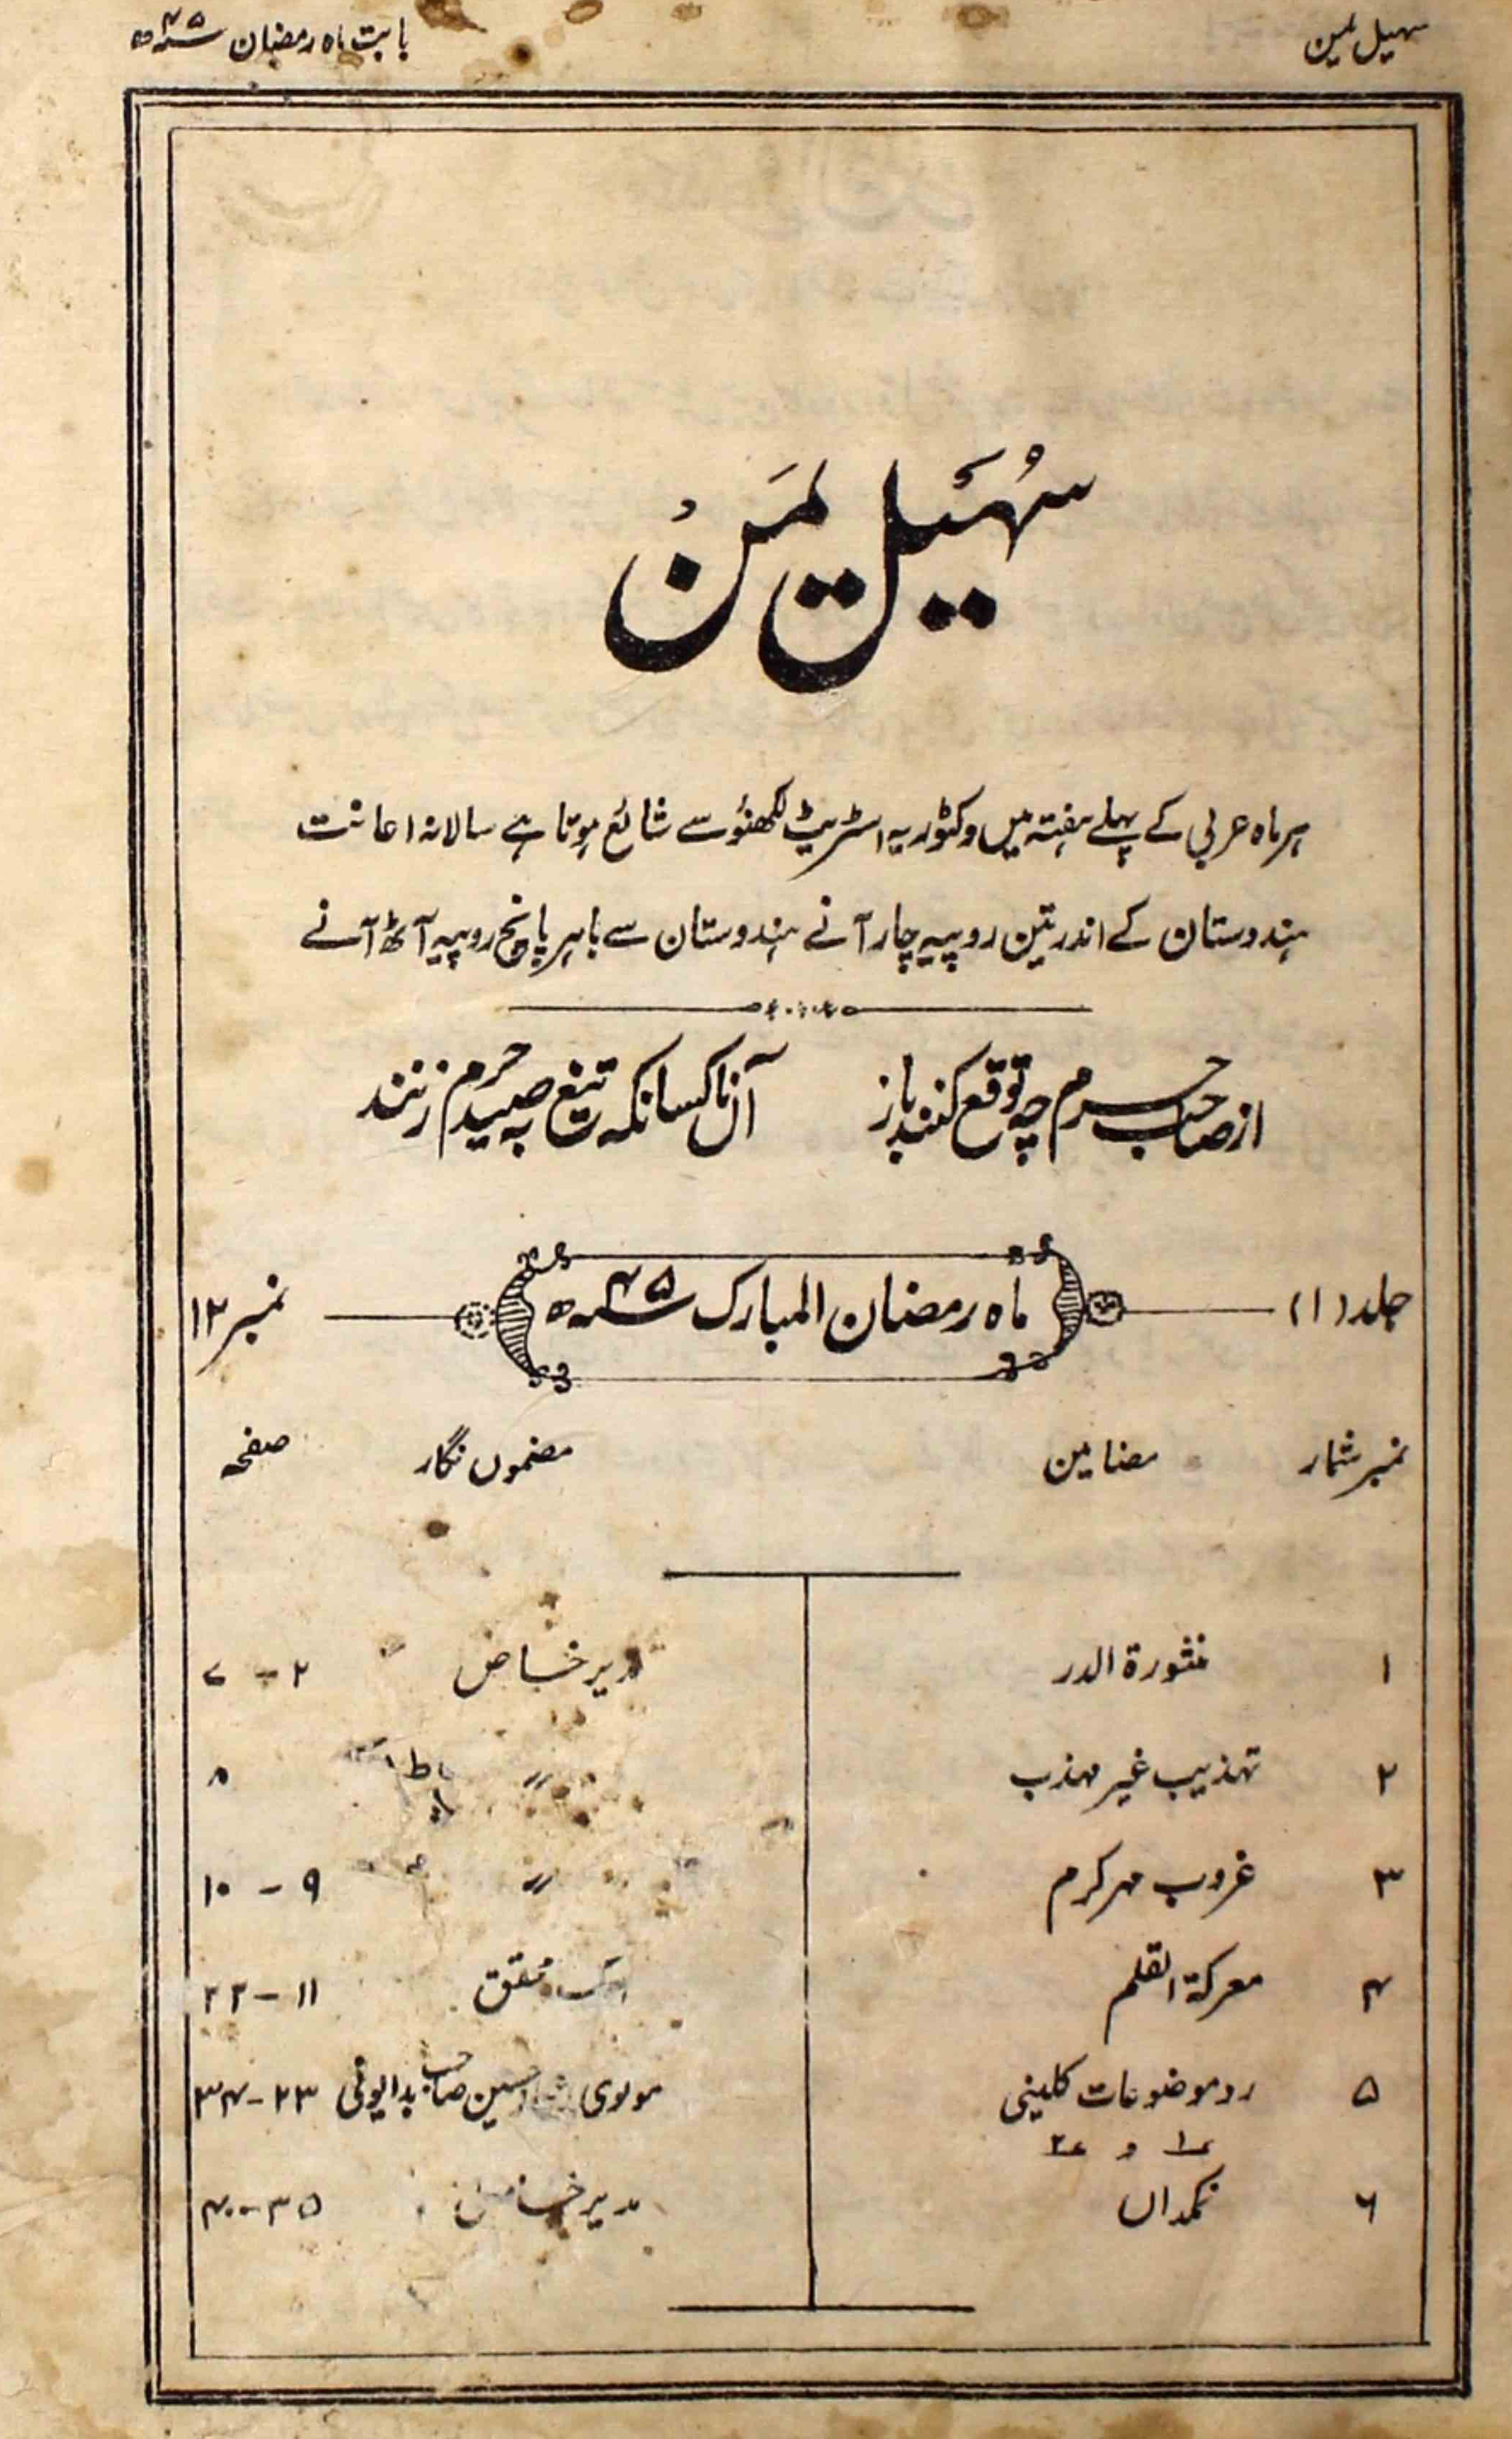 سہیل یمن
بابت ماہ رمضان ۴۵ھ
سُہَیل یَمَنْ
ہر ماہ عربی کے پہلے ہفتہ میں وکٹوریہ اسٹریٹ لکھنؤ سے شائع ہوتا ہے سالانہ اعانت
ہندوستان کے اندر تین روپیہ چار آنے ہندوستان سے باہر پانچ روپیہ آٹھ آنے
از صاحب حرم چہ توقع کنند باز آں ناکسانکہ تیغ بہ صید حرم زنند
جلد (۱) ماہ رمضان المبارک ۴۵ھ نمبر ۱۲
نمبر شمار مضامین مضمون نگار صفحہ
۱ نثورة الدر مدیر خاص ۲ - ۷
۲ تہذیب غیر مہذب 〃 ۸
۳ غروب مہر کرم 〃 ۹ - ۱۰
۴ معرکۃ القلم محقق ۱۱ - ۲۲
۵ رد موضوعات کلینی مولوی حسین صاحب بدایونی ۲۳ - ۳۴
۱ و ۲
۶ نمکداں مدیر خاص ۳۵ - ۴۰